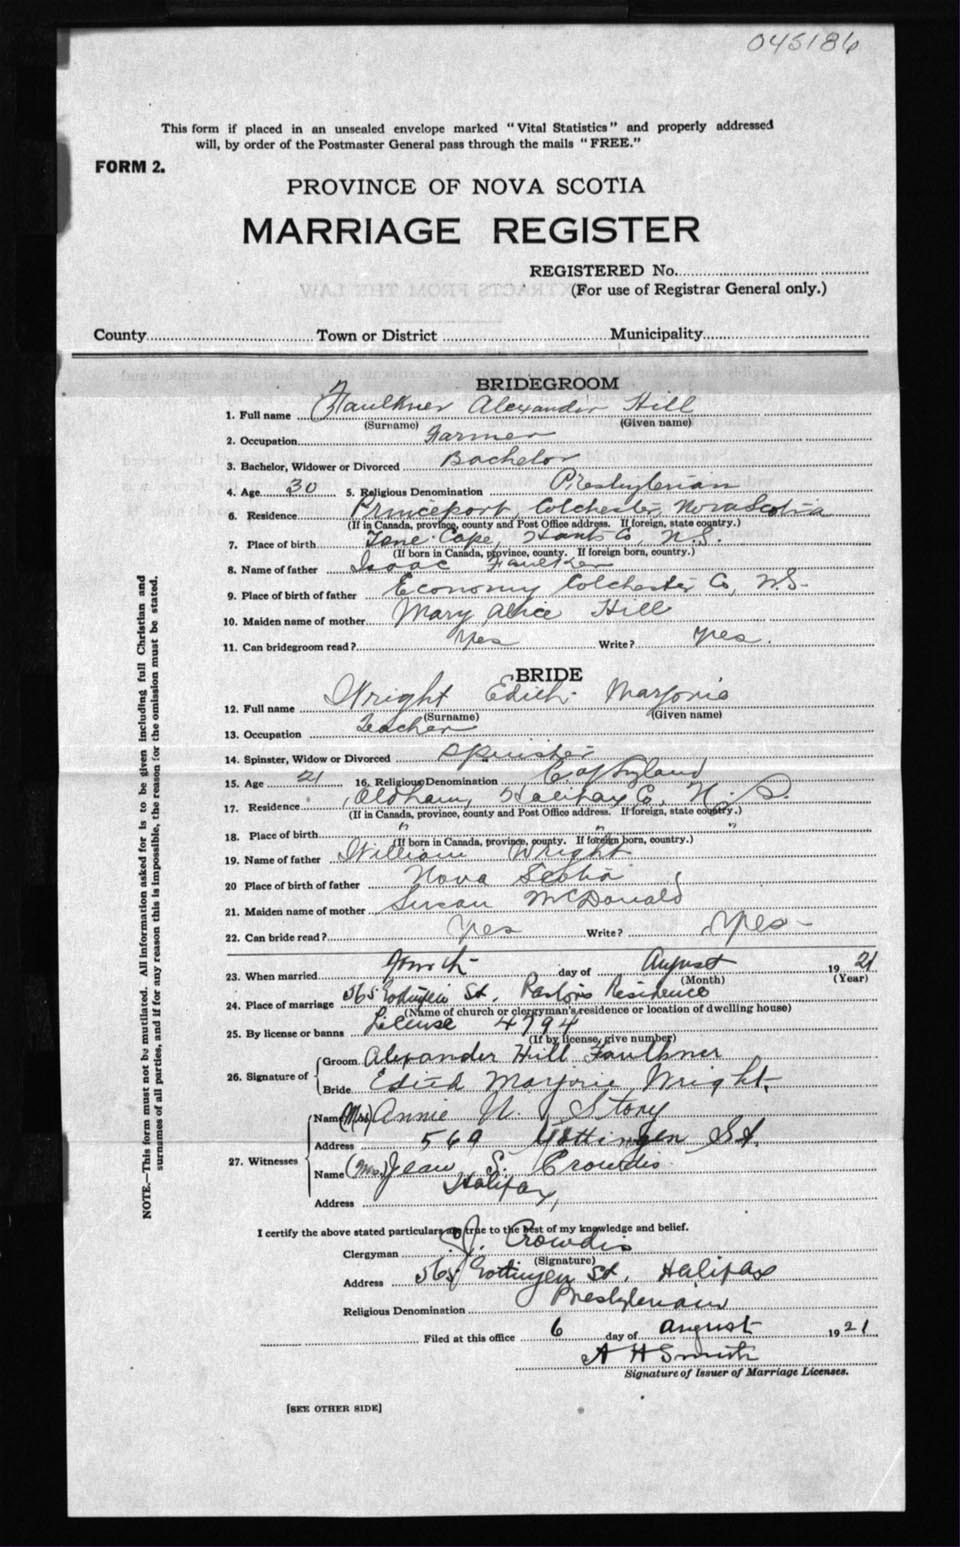 045186
This form if placed in an unsealed envelope marked "Vital Statistics" and properly addressed
will, by order of the Postmaster General pass through the mails "FREE."
FORM 2.
PROVINCE OF NOVA SCOTIA
MARRIAGE REGISTER
REGISTERED No.
(For use of Registrar General only.)
County Town or District Municipality
BRIDEGROOM
1. Full name Faulkner Alexander Hill
(Surname) (Given name)
2. Occupation Farmer
3. Bachelor, Widower or Divorced Bachelor
4. Age 30 5. Religious Denomination Presbyterian
6. Residence Princeport, Colchester, Nova Scotia
(If in Canada, province, county and Post Office address. If foreign, state country.)
7. Place of birth Cape, Hants Co, N.S.
(If born in Canada, province, county. If foreign born, country.)
8. Name of father Isaac Faulkner
9. Place of birth of father Economy Colchester Co, N.S.
10. Maiden name of mother Mary Alice Hill
11. Can bridegroom read? Yes Write? Yes.
BRIDE
12. Full name Wright Edith Marjorie
(Surname) (Given name)
13. Occupation Teacher
14. Spinster, Widow or Divorced Spinster
15. Age 21 16. Religious Denomination C of England
17. Residence Oldham, Halifax Co, N.S.
(If in Canada, province, county and Post Office address. If foreign, state country.)
18. Place of birth " " "
(If born in Canada, province, county. If foreign born, country.)
19. Name of father William Wright
20 Place of birth of father Nova Scotia
21. Maiden name of mother Susan McDonald
22. Can bride read? Yes Write? Yes
23. When married Fourth day of August 1921
(Month) (Year)
24. Place of marriage 565 Gottingen St, Pastor's Residence
(Name of church or clergyman's residence or location of dwelling house)
25. By license or banns License 4794
(If by license, give number)
26. Signature of Groom Alexander Hill Faulkner
Bride Edith Marjorie Wright
27. Witnesses Name (Mrs) Annie N. Story
Address 569 Gottingen St.
Name (Mrs.) Jean S. Crowdis
Address Halifax,
I certify the above stated particulars are true to the best of my knowledge and belief.
Clergyman J. Crowdis
(Signature)
Address 565 Gottingen St, Halifax
Religious Denomination Presbyterian
Filed at this office 6 day of August 1921
A H Smith
Signature of Issuer of Marriage Licenses.
[SEE OTHER SIDE]
NOTE.—This form must not be mutilated. All information asked for is to be given including full Christian and
surnames of all parties, and if for any reason this is impossible, the reason for the omission must be stated.